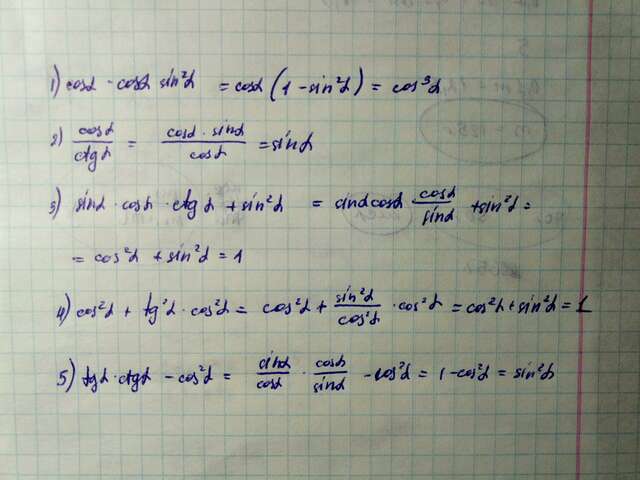 1) cosα - cosα sin²α = cosα (1 - sin²α) = cos³α
2) cosα/ctgα = cosα · sinα/cosα = sinα
3) sinα · cosα · ctgα + sin²α = sinα cosα · cosα/sinα + sin²α =
= cos²α + sin²α = 1
4) cos²α + tg²α · cos²α = cos²α + sin²α/cos²α · cos²α = cos²α + sin²α = 1
5) tgα · ctgα - cos²α = sinα/cosα · cosα/sinα - cos²α = 1 - cos²α = sin²α